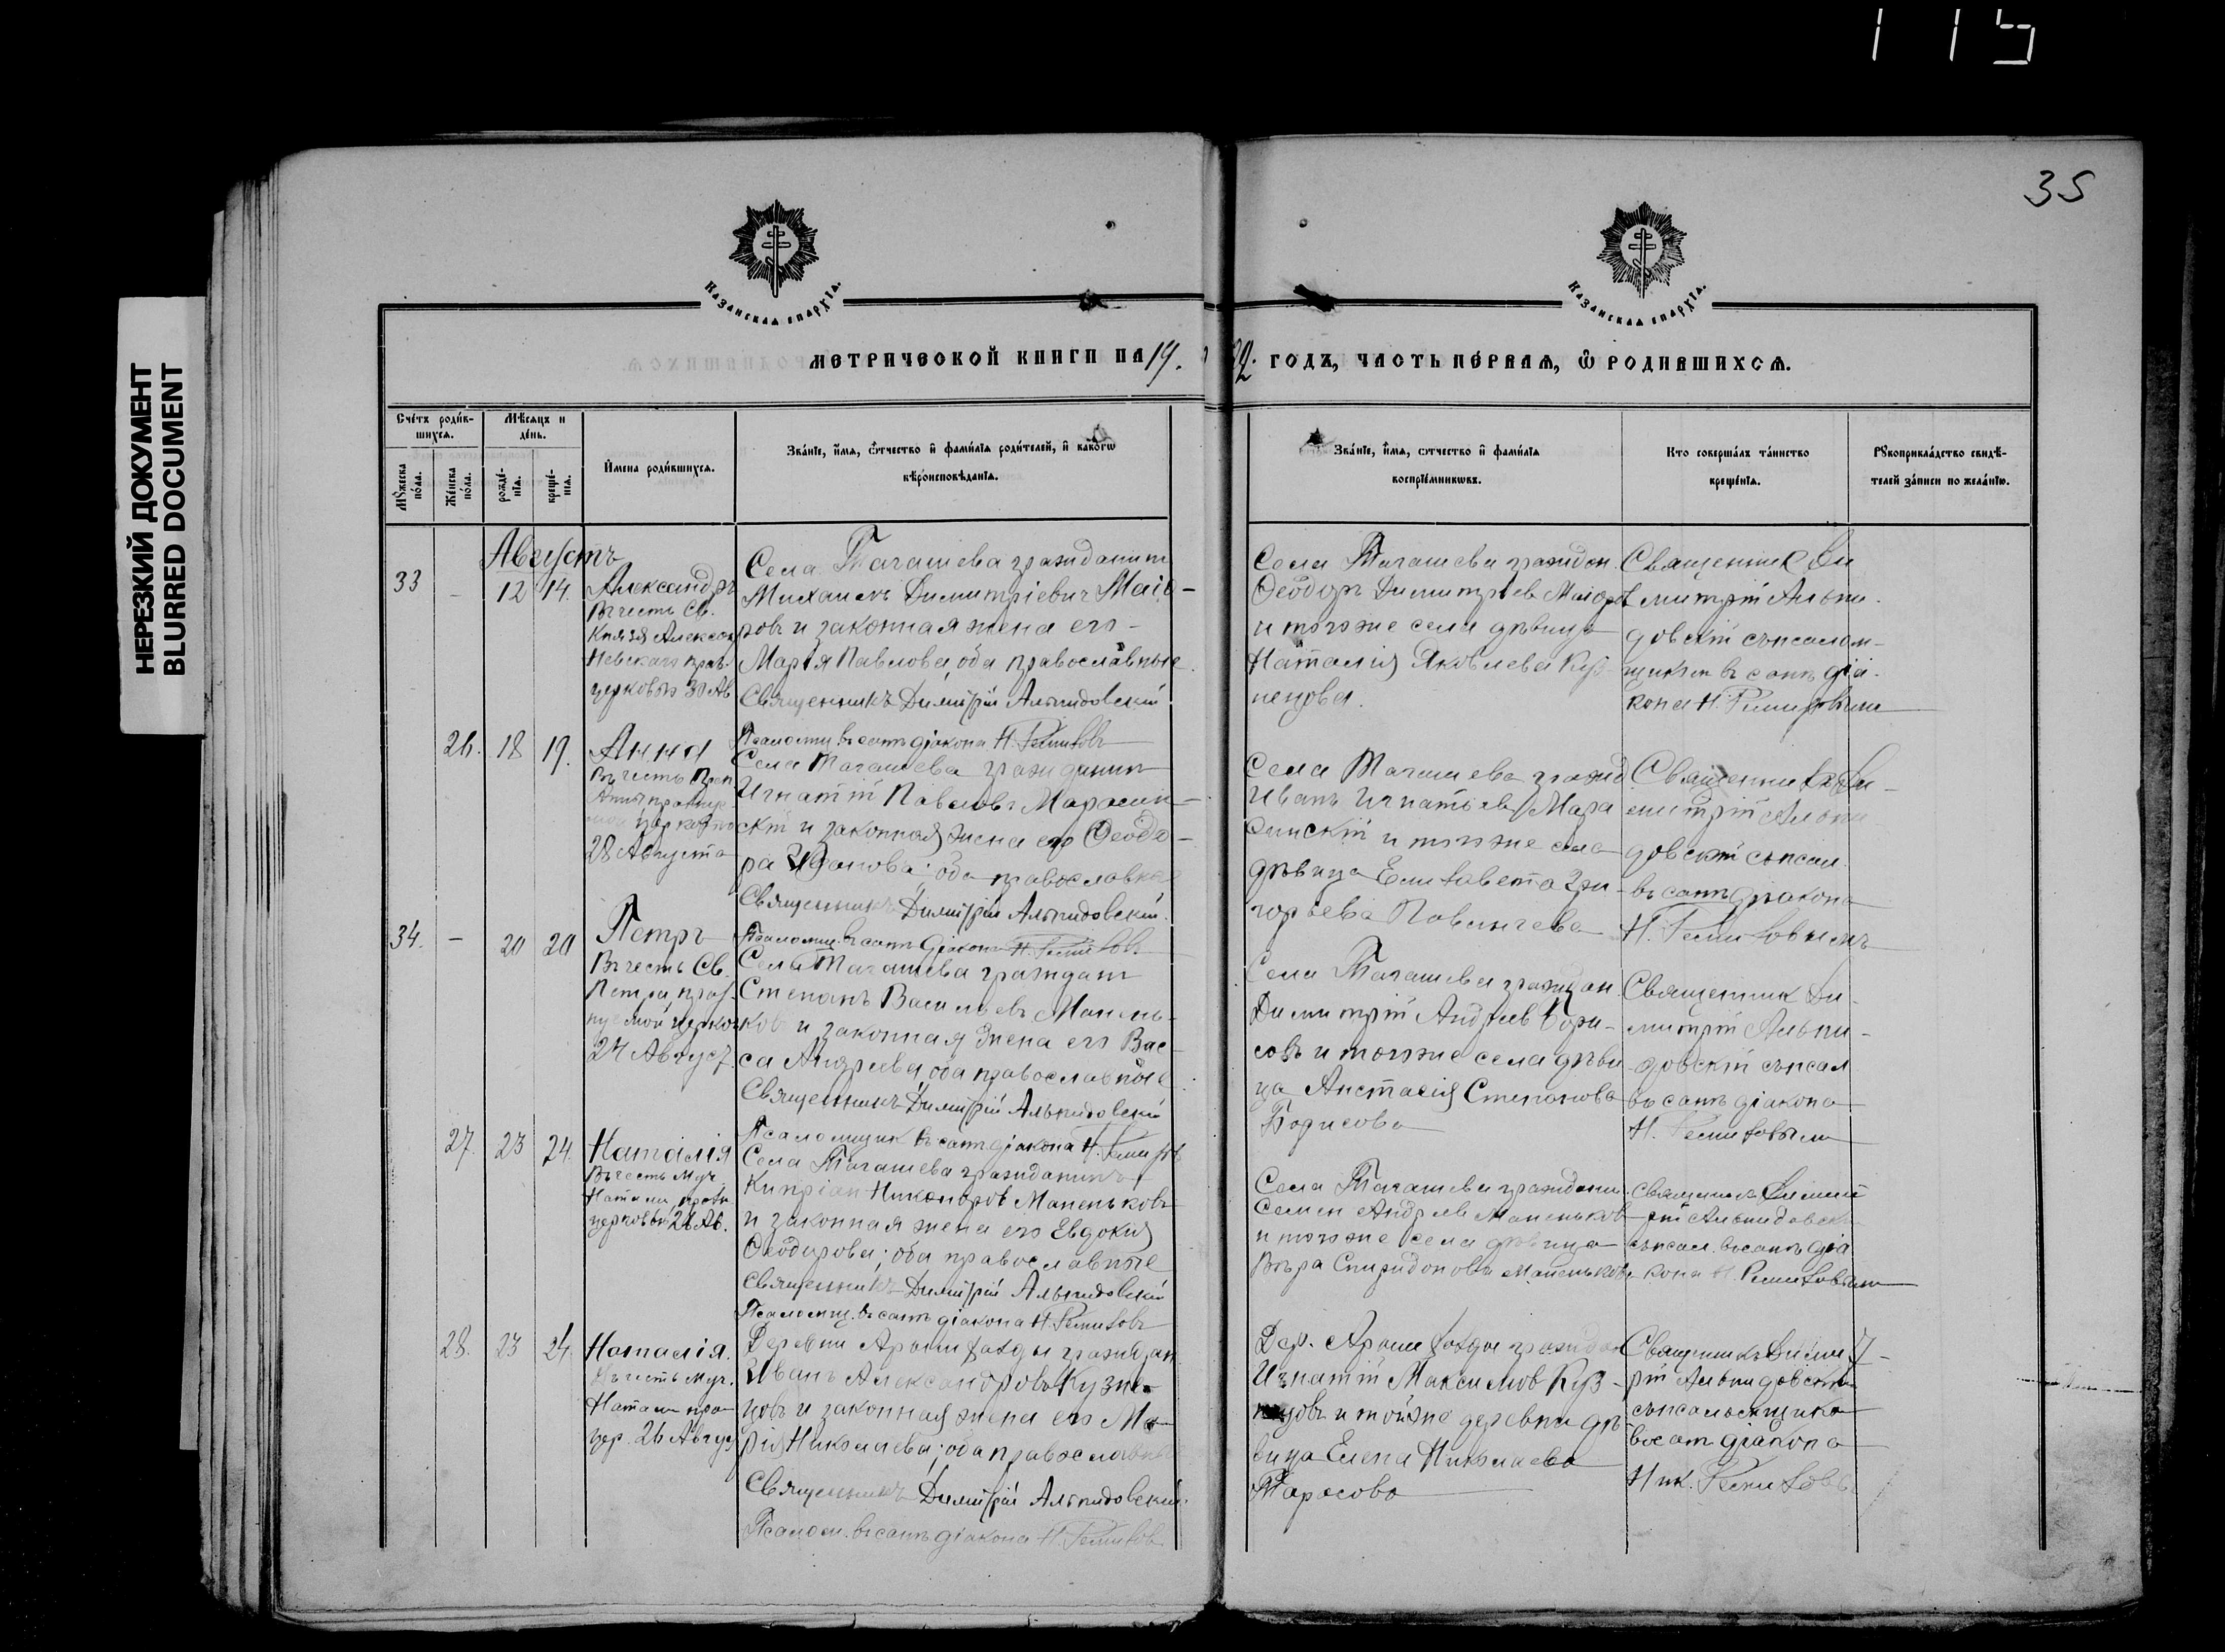 115
35
НЕРЕЗКИЙ ДОКУМЕНТ
BLURRED DOCUMENT
Казанская епархїа.
Казанская епархїа.
МЕТРИЧЕСКОЙ КНИГИ НА 19.
22. ГОДЪ, ЧАСТЬ ПЕРВАЯ, Ѡ РОДИВШИХСЯ.
Счетъ родив-
шихся.
Мѣсяцъ и
день.
Мужеска
пола.
Женска
пола.
рожде-
нїя.
креще-
нїя.
Имена родившихся.
Званїе, имя, ѿчество и фамилїя родителей, и какогѡ
вѣроисповѣданїя.
Званїе, имя, ѿчество и фамилїя
воспрїемникѡвъ.
Кто совершалъ таинство
крещенїя.
Рукоприкладство свидѣ-
телей записи по желанїю.
Августъ
33 - 12 14.
Александръ
Въ честь Св.
Князя Алексан
Невскаго праз
церковью 30 Ав
Села Тагашева гражданинъ
Михаилъ Димитріевич Маіо-
ровъ и законная жена его-
Марія Павлова, оба православные.
Священникъ Димитрій Альпидовскій
Псаломщ. въ санѣ діакона Н. Ремизовъ
Села Тагашева граждан.
Ѳеодоръ Димитріев Маіоров
и того же села дѣвица
Наталія Яковлева Куз-
нецова.
Священник Ди
митрій Альпи-
довскій съ псалом-
щиком въ санѣ діа-
кона Н. Ремизовым
26. 18 19.
Анна
Въ честь Прп
28 Августа
Села Тагашева гражданин
Игнатій Павловъ Марасин-
скій и законная жена его Ѳеодо-
ра Иванова; оба православные
Священникъ Димитрій Альпидовскій.
Псаломщ. въ санѣ діакона Н. Ремизовъ
Села Тагашева гражд
Иванъ Игнатьев Мара
синскій и того же села
дѣвица Елизавета Гри-
горьева
Священник Ди-
митрій Альпи
довскій съ псал.
въ санѣ діакона
Н. Ремизовымъ
34. - 20 20
Петръ
Въ честь Св.
Петра, праз-
нуемой церков
24 Август.
Села Тагашева граждан
Степанъ Васильевъ Мапень-
ковъ и законная жена его Вас-
са Андреева, оба православные
Священникъ Димитрій Альпидовскій
Псаломщик въ санѣ діакона Н. Ремизов
Села Тагашева граждан.
Димитрій Андреев Бори-
совъ и того же села дѣви
ца Анстасія Степанова
Борисова
Священник Ди-
митрій Альпи-
довскій съ псал
въ санѣ діакона
Н. Ремизовым
27. 23 24.
Наталія
Въ честь Муч.
Наталіи, праз
церковью 26 Ав.
Села Тагашева гражданинъ
Кипріан Никаноров Мапеньковъ
и законная жена его Евдокія
Ѳеодорова; оба православные
Священникъ Димитрій Альпидовскій
Псаломщ. въ санѣ діакона Н. Ремизовъ
Села Тагашева граждани
Семен Андреев Мапеньков
и того же села дѣвица
Вѣра Спиридонова Мапенькова
Священникъ Димит
рій Альпидовск
съ псал. въ санѣ діа
кона Н. Ремизовым
28. 23 24.
Наталія.
Въ честь Муч.
Наталіи праз
цер. 26 Август
Деревни граждан
Иванъ Александровъ Кузне-
цовъ и законная жена его Ма-
рія Николаева; оба православн
Священникъ Димитрій Альпидовскій.
Псалом. въ санѣ діакона Н. Ремизов
Дер. граждан
Игнатій Максимов Куз-
нецовъ и той же деревни дѣ-
вица Елена Николаева
Тарасова
Священникъ Димит-
рій Альпидовскій
съ псаломщиком
въ санѣ діакона
Ник. Ремизовъ